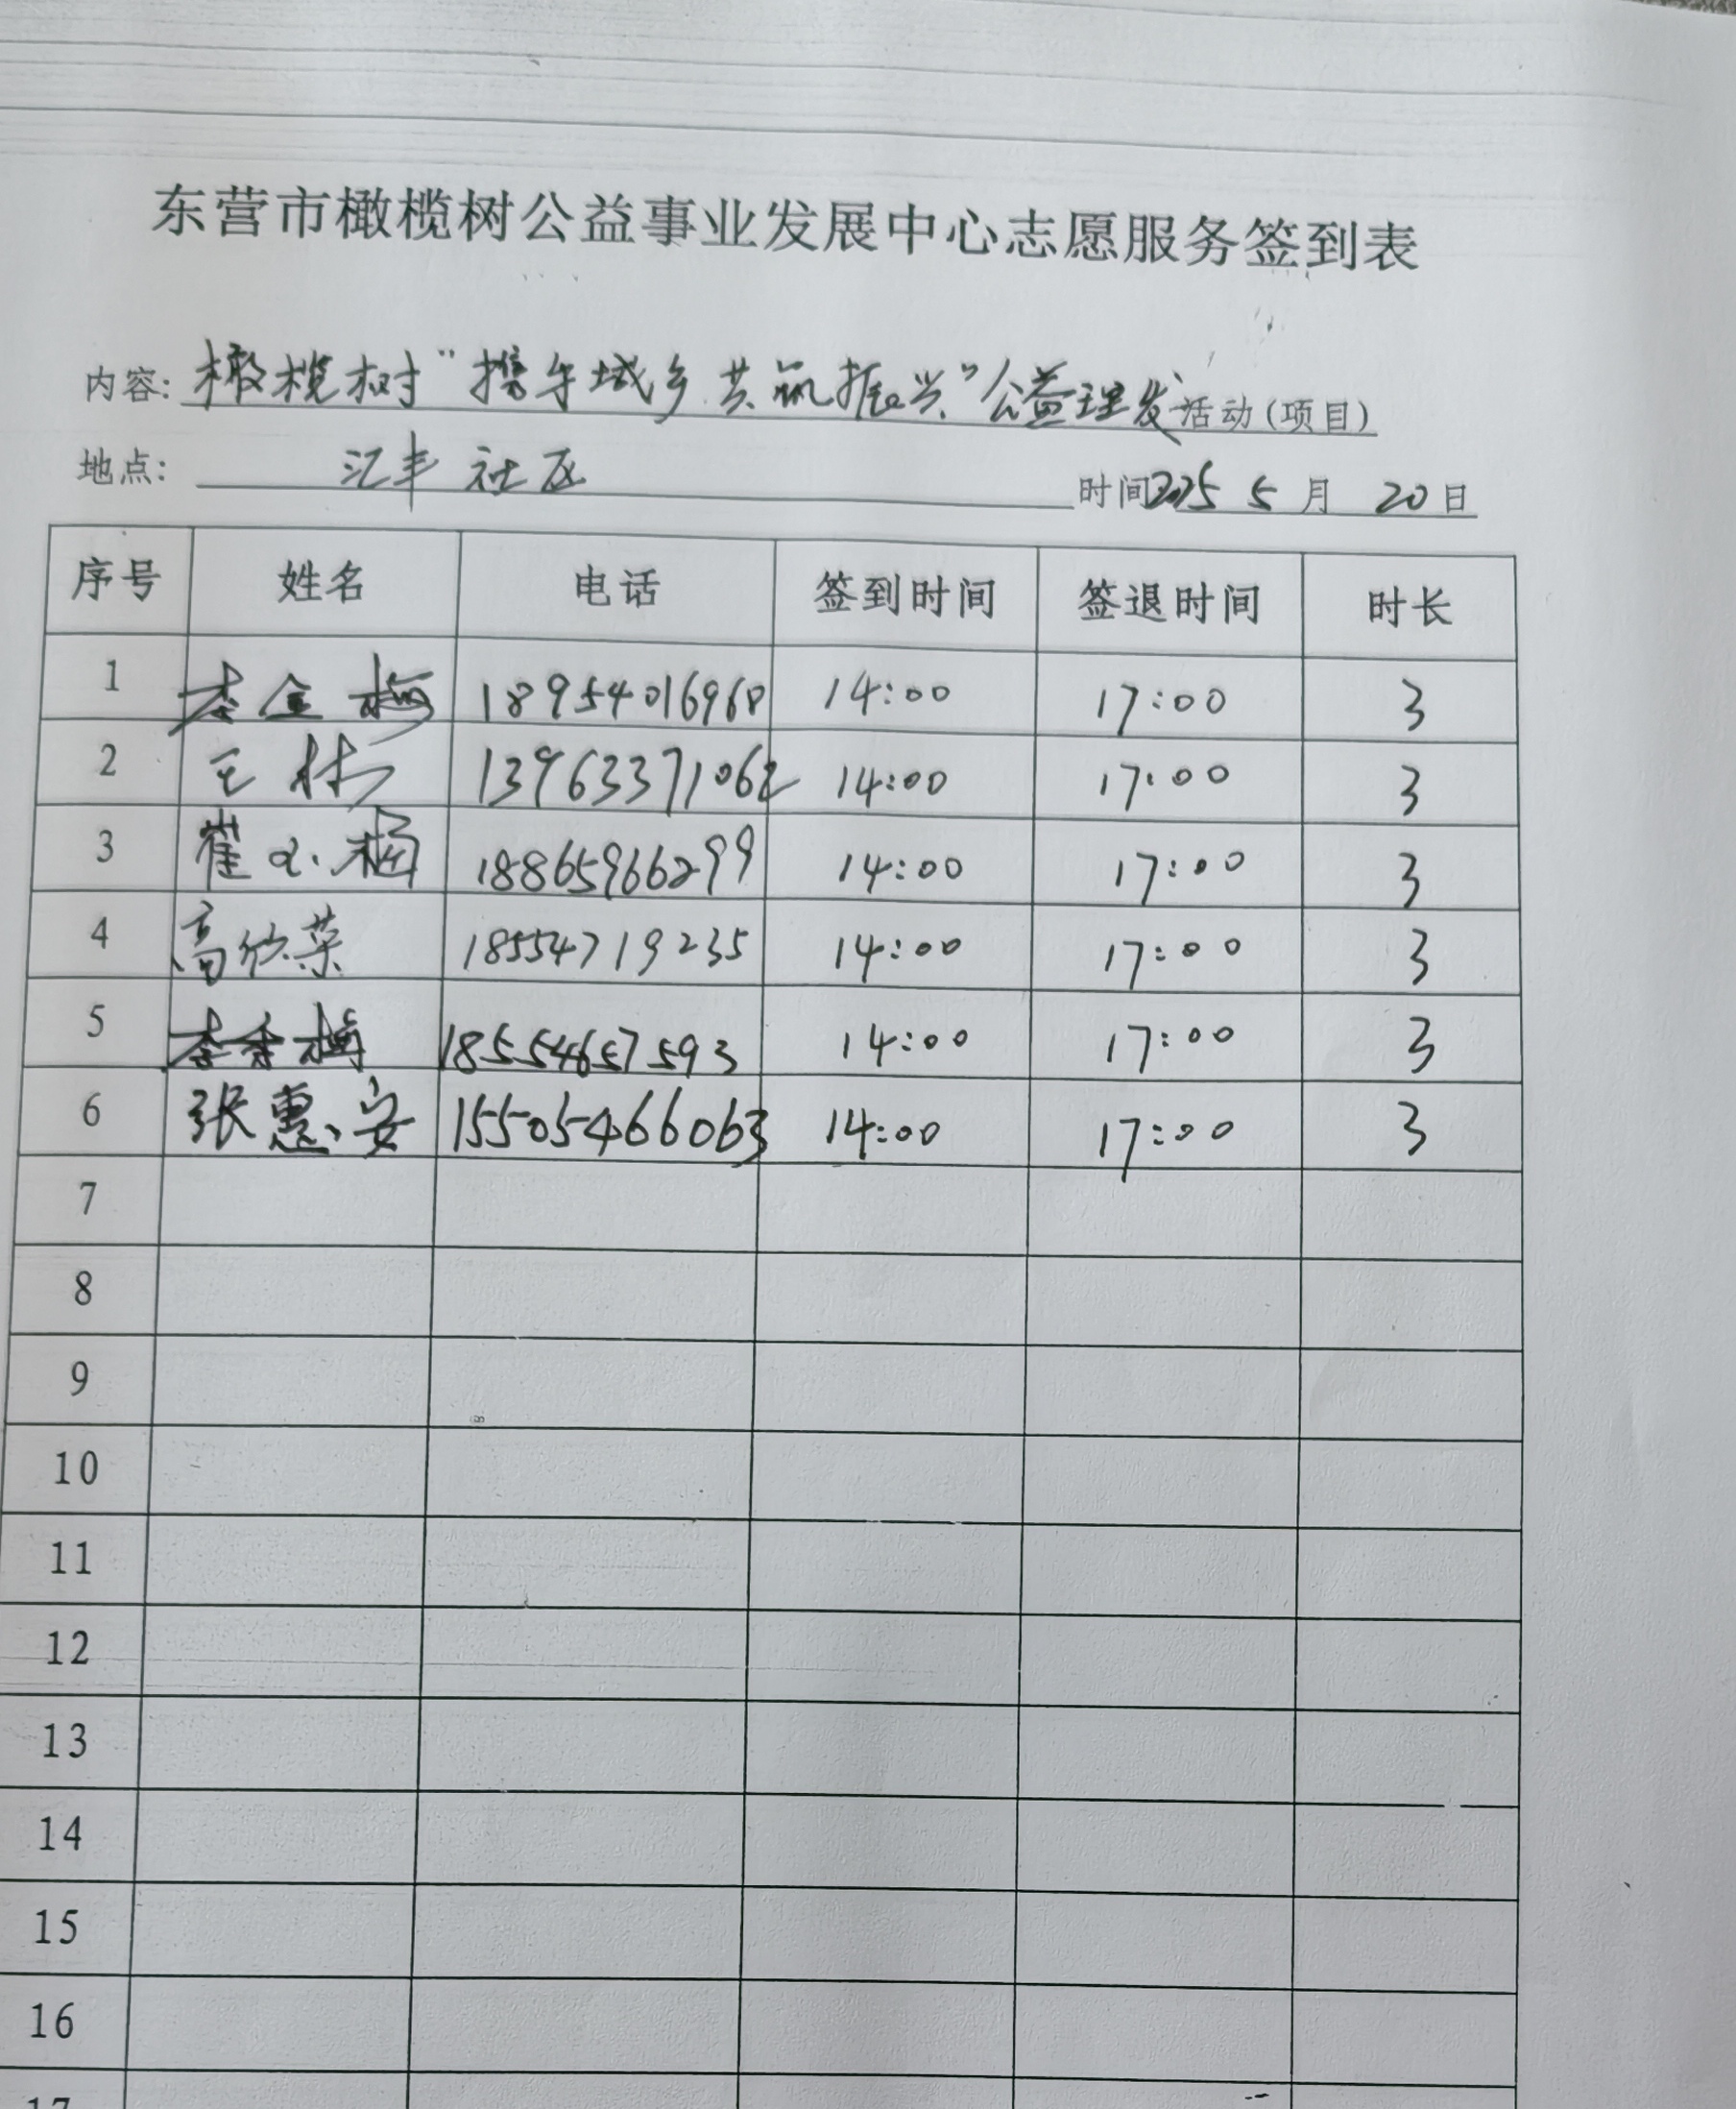 东营市橄榄树公益事业发展中心志愿服务签到表
内容: 橄榄树“携手城乡 共筑振兴”公益理发活动(项目)
地点: 汇丰社区 时间2025 5 月 20 日
序号 姓名 电话 签到时间 签退时间 时长
1 李金梅 18954016968 14:00 17:00 3
2 王 13963371062 14:00 17:00 3
3 崔小梅 18865966299 14:00 17:00 3
4 高欣荣 18554719235 14:00 17:00 3
5 李秀梅 18554657593 14:00 17:00 3
6 张惠安 15505466063 14:00 17:00 3
7
8
9
10
11
12
13
14
15
16
17